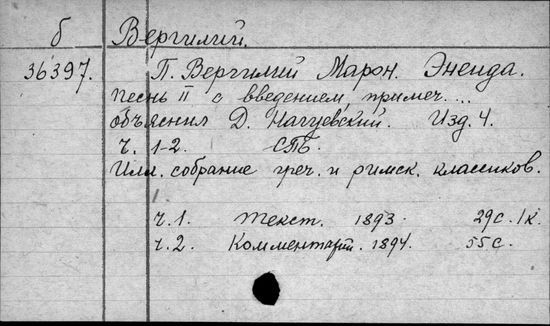 б Вергилий.
36397. П. Вергилий Марон. Энеида.
Песнь II с введением, примеч. ...
объяснил Д. Нагуевский. Изд. 4.
Ч. 1-2. СПБ.
Илл. собрание греч. и римск. классиков.
ч. 1. Текст. 1893 29с. 1к.
ч. 2. Комментарий. 1894. 55с.